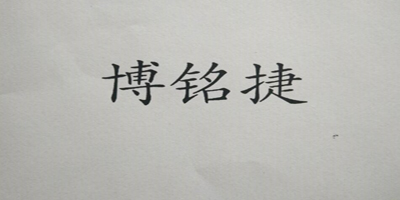 博铭捷